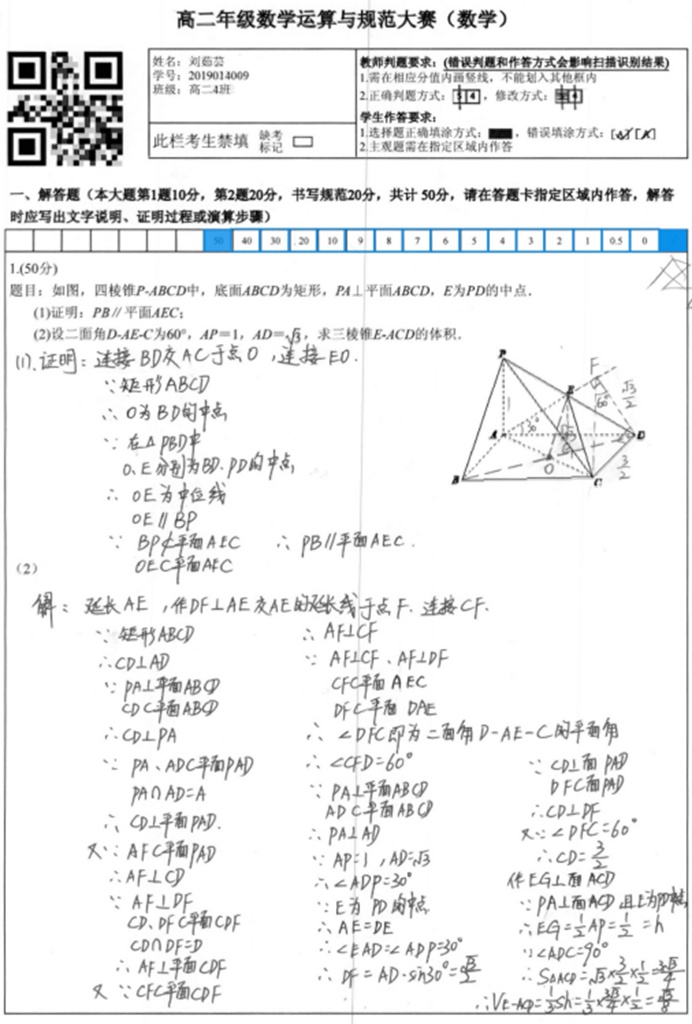 高二年级数学运算与规范大赛（数学）
姓名：刘茹芸
学号：2019014009
班级：高二4班
此栏考生禁填 缺考标记
教师判题要求：(错误判题和作答方式会影响扫描识别结果)
1.需在相应分值内画竖线，不能划入其他框内
2.正确判题方式： ，修改方式：
学生作答要求：
1.选择题正确填涂方式： ，错误填涂方式：
2.主观题需在指定区域内作答
一、解答题（本大题第1题10分，第2题20分，书写规范20分，共计 50分，请在答题卡指定区域内作答，解答
时应写出文字说明、证明过程或演算步骤）
50 40 30 20 10 9 8 7 6 5 4 3 2 1 0.5 0
1.(50分)
题目：如图，四棱锥P-ABCD中，底面ABCD为矩形，PA⊥平面ABCD，E为PD的中点．
(1)证明：PB∥平面AEC；
(2)设二面角D-AE-C为60°，AP＝1，AD＝√3，求三棱锥E-ACD的体积．
(1).证明：连接BD交AC于点O，连接EO．
∵矩形ABCD
∴O为BD的中点
∵在△PBD中
O、E分别为BD、PD的中点
∴OE为中位线
OE∥BP
∵BP⊄平面AEC ∴PB∥平面AEC．
OE⊂平面AEC
P
F
E
√3/2
60°
A
30°
D
O
3/2
B
C
（2）
解：延长AE，作DF⊥AE交AE的延长线于点F．连接CF．
∵矩形ABCD
∴CD⊥AD
∵PA⊥平面ABCD
CD⊂平面ABCD
∴CD⊥PA
∵PA、AD⊂平面PAD
PA∩AD=A
∴CD⊥平面PAD．
又∵AF⊂平面PAD
∴AF⊥CD
∵AF⊥DF
CD、DF⊂平面CDF
CD∩DF=D
∴AF⊥平面CDF
又∵CF⊂平面CDF
∴AF⊥CF
∵AF⊥CF、AF⊥DF
CF⊂平面AEC
DF⊂平面DAE
∴∠DFC即为二面角D-AE-C的平面角
∴∠CFD=60°
∵PA⊥平面ABCD
AD⊂平面ABCD
∴PA⊥AD
∵AP=1，AD=√3
∴∠ADP=30°
∵E为PD的中点
∴AE=DE
∴∠EAD=∠ADP=30°
∴DF=AD·sin30°=√3/2
∵CD⊥面PAD
DF⊂面PAD
∴CD⊥DF
又∵∠DFC=60°
∴CD=3/2
作EG⊥面ACD
∵PA⊥面ACD且E为PD中点
∴EG=1/2AP=1/2=h
∵∠ADC=90°
∴S△ACD=√3×3/2×1/2=3√3/4
∴VE-ACD=1/3Sh=1/3×3√3/4×1/2=√3/8